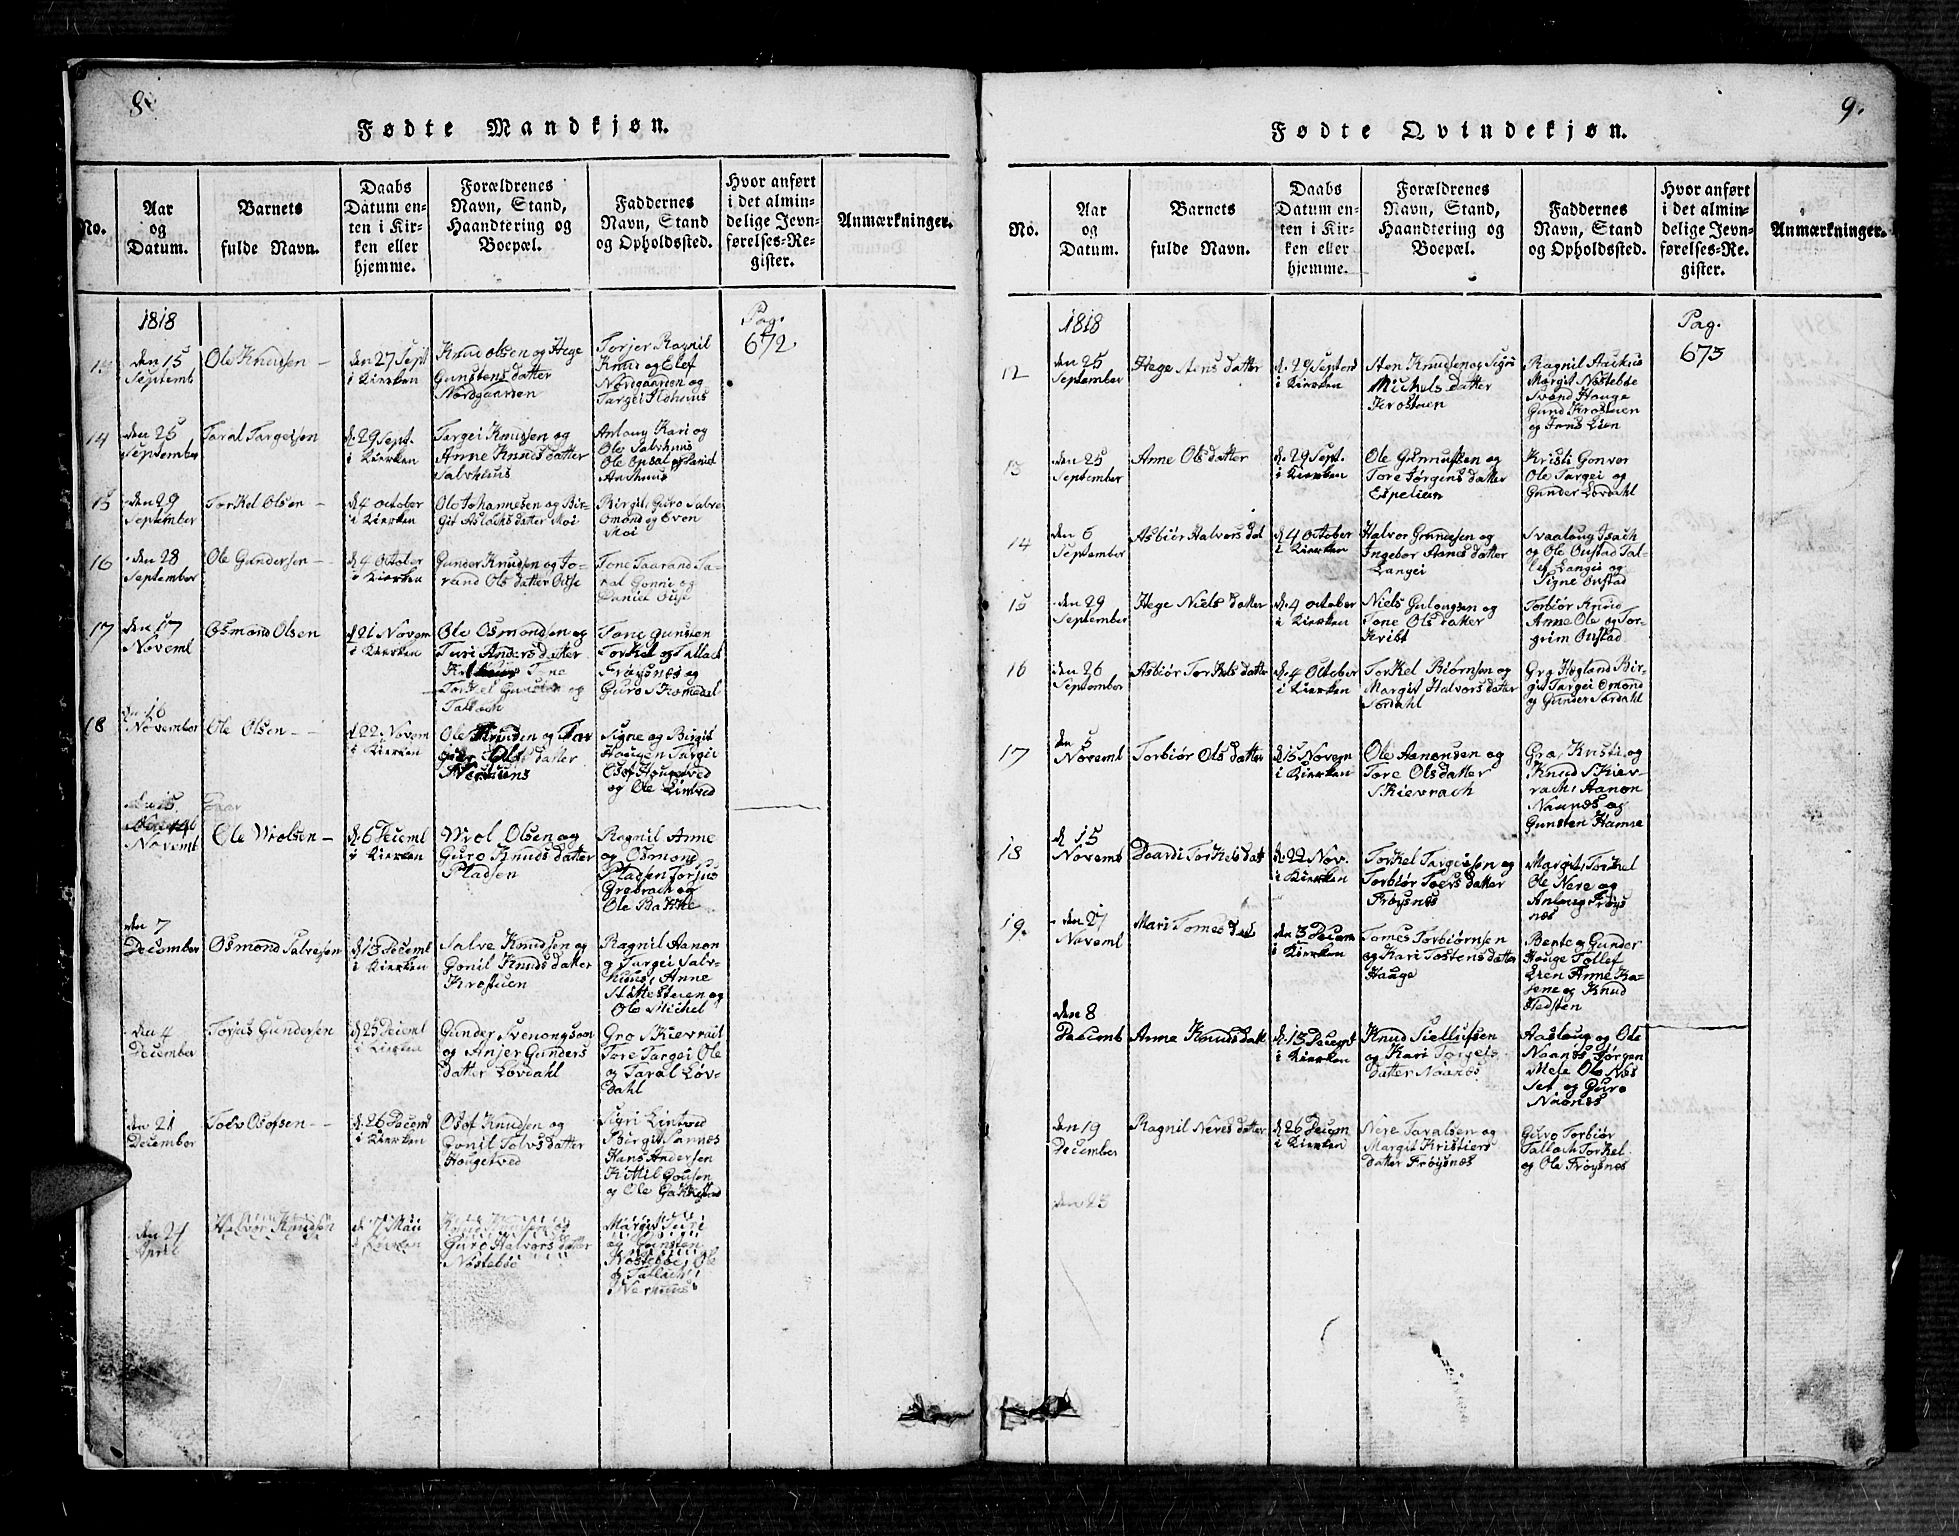 8.
Fødte Mandkjøn.
No.
Aar
og
Datum.
Barnets
fulde Navn.
Daabs
Datum en-
ten i Kir-
ken eller
hjemme.
Forældrenes
Navn, Stand,
Haandtering og
Boepæl.
Faddernes
Navn, Stand
og Opholdssted.
Hvor anført
i det almin-
delige Jevn-
førelses-Re-
gister.
Anmærkninger.
1818
Pag.
672
13
den 15
Septemb
Ole Knudsen
den 27 Sept
i Kierken
Knud Olsen og Hege
Gunstens datter
Nordgaarden
Torjer Ragnil
Knud og Elef
Nordgaarden og
Targei
14
den 25
September
Taral Targeisen
d. 29 Sept.
i Kierken
Targei Knudsen og
Anne Knuds datter
Salvhuus
Anlaug Kari og
Ole Salvhuus
Ole Opsal og Daniel
15
den 29
September
Torkel Olsen
d. 4 October
i Kierken
Ole Johannesen og Bir-
git Aslachs datter Moi
Birgit Guro Salve
Omond og Even
Moi
16
den 28
September
Ole Gundersen
d. 4 October
i Kierken
Gunder Knudsen og To-
rand Ols datter Ouse
Tone Taarand Ta-
ral Gonne og
Daniel Ouse
17
den 17
Noveml
Osmond Olsen
d. 21 Novem
i Kierken
Ole Osmondsen og
Turi Anders datter
Tone
Torkel Gunsten og
Tallach
Tone Gunsten
Torkel og Tallach
Frøysnæs og
Guro Skomedal
18
den 16
November
Ole Olsen
d. 22 Novem
i Kierken
Ole Knudsen og
Ols datter
Signe og Birgit
Hougen Targei
Osof Hougetved
og Ole Lintved
Novemb
Ole Wrolsen
d. 6 Deceml
i Kierken
Wrol Olsen og
Guro Knuds datter
Pladsen
Ragnil Anne
og Osmond
Pladsen Torjus
Grebrach og
Ole Bakke
den 7
December
Osmond Salvesen
d. 13 Deceml
i Kierken
Salve Knudsen og
Gonil Knuds datter
Krostuen
Ragnil Aanon
og Targei Salv-
huus, Anne
Støttestuen og
Ole Michel
den 4
December
Torjus Gundersen
d. 25 Deceml
i Kierken
Gunder Svenongsøn
og Anjer Gunders
datter Løvdahl
Gro Skievrait
Tore Targei Ole
og Taral Løv-
dahl
den 21
December
Tolv Osofsen
d. 26 Decemb
i Kierken
Osof Knudsen og
Gonil Tolvs datter
Hougetved
Sigri Lintved
Birgit Sannæs
Hans Andersen
Kittil
og Ole
den 21
April
Halvor Knudsen
d. 7 Maii
i Kierken
Knud Knudsen og
Guro Halvors datter
Nøstebøe
Margit Turi
og Gunsten
Nøstebøe, Ole
og Tallach
Nerhuus
9.
Fødte Qvindekjøn.
No.
Aar
og
Datum.
Barnets
fulde Navn.
Daabs
Datum en-
ten i Kir-
ken eller
hjemme.
Forældrenes
Navn, Stand,
Haandtering og
Boepæl.
Faddernes
Navn, Stand
og Opholdssted.
Hvor anført
i det almin-
delige Jevn-
førelses-Re-
gister.
Anmærkninger.
1818
Pag.
673
12
den 25
September
Hege Stens datter
d. 29 Septemb
i Kierken
Sten Knudsen og Sigri
Michels datter
Krostuen
Ragnil
Margit Nøstebøe
Svend Houge
Gund Krostuen
og Jens Lien
13
den 25
September
Anne Ols datter
d. 29 Sept.
i Kierken
Ole Gunnufsen og
Tore Jørgens datter
Espelien
Kristi Gonvor
Ole Targei og
Gunder Løvdahl
14
den 6
September
Asbiør Halvors dat
d. 4 October
i Kierken
Halvor Gundersen og
Ingebor Aanes datter
Langei
Svaalaug Isach
og Ole Oustad Tal-
lef Langei og
Signe Oustad
15
den 29
September
Hege Niels datter
d. 4 October
i Kierken
Niels Gulougsen og
Tone Ols datter
Kribt
Torbiør Knud
Anne Ole og Tor-
grim Oustad
16
den 26
September
Asbiør Torkels datter
d. 4 October
i Kierken
Torkel Biørnsen og
Margit Halvors datter
Sordahl
Gro Høgland Bir-
git Targei Omond
og Gunder Sordahl
17
den 5
Noveml
Torbiør Ols datter
d. 15 Novem
i Kierken
Ole Aanonsen og
Tore Ols datter
Skievrach
Gro, Kristi og
Knud Skiev-
rach, Aanon
Naanæs og
Gunsten Hamre
18
d. 15
Novemb
Daardi Torkels datt
d. 22 Nov.
i Kierken
Torkel Targeisen og
Torbiør Toers datter
Frøysnæs
Margit, Torkel
Ole Nere og
Anlaug Frøys
næs
19.
den 27
Noveml
Mari Tomes dat
den 3 Decem
i Kierken
Tomes Torbiørnsen
og Kari Tostens datter
Hauge
Berte og Gunder
Houge Tollef
Lien Anne
og Knud
den 8
Decemb
Anne Knuds datt
d. 13 Decemb
i Kierken
Knud Siellufsen
og Kari Torgels
datter Naanæs
Aaslaug og Ole
Naanæs Jørgen
Ole Næs
Set, og Guro
Naanæs
den 19
December
Ragnil Neres datter
d. 26 Decem
i Kierken
Nere Taralsen og
Margit Kristiers
datter Frøysnæs
Guro Torbiør
Tallach Torkel
og Ole Frøysnæs
den 23